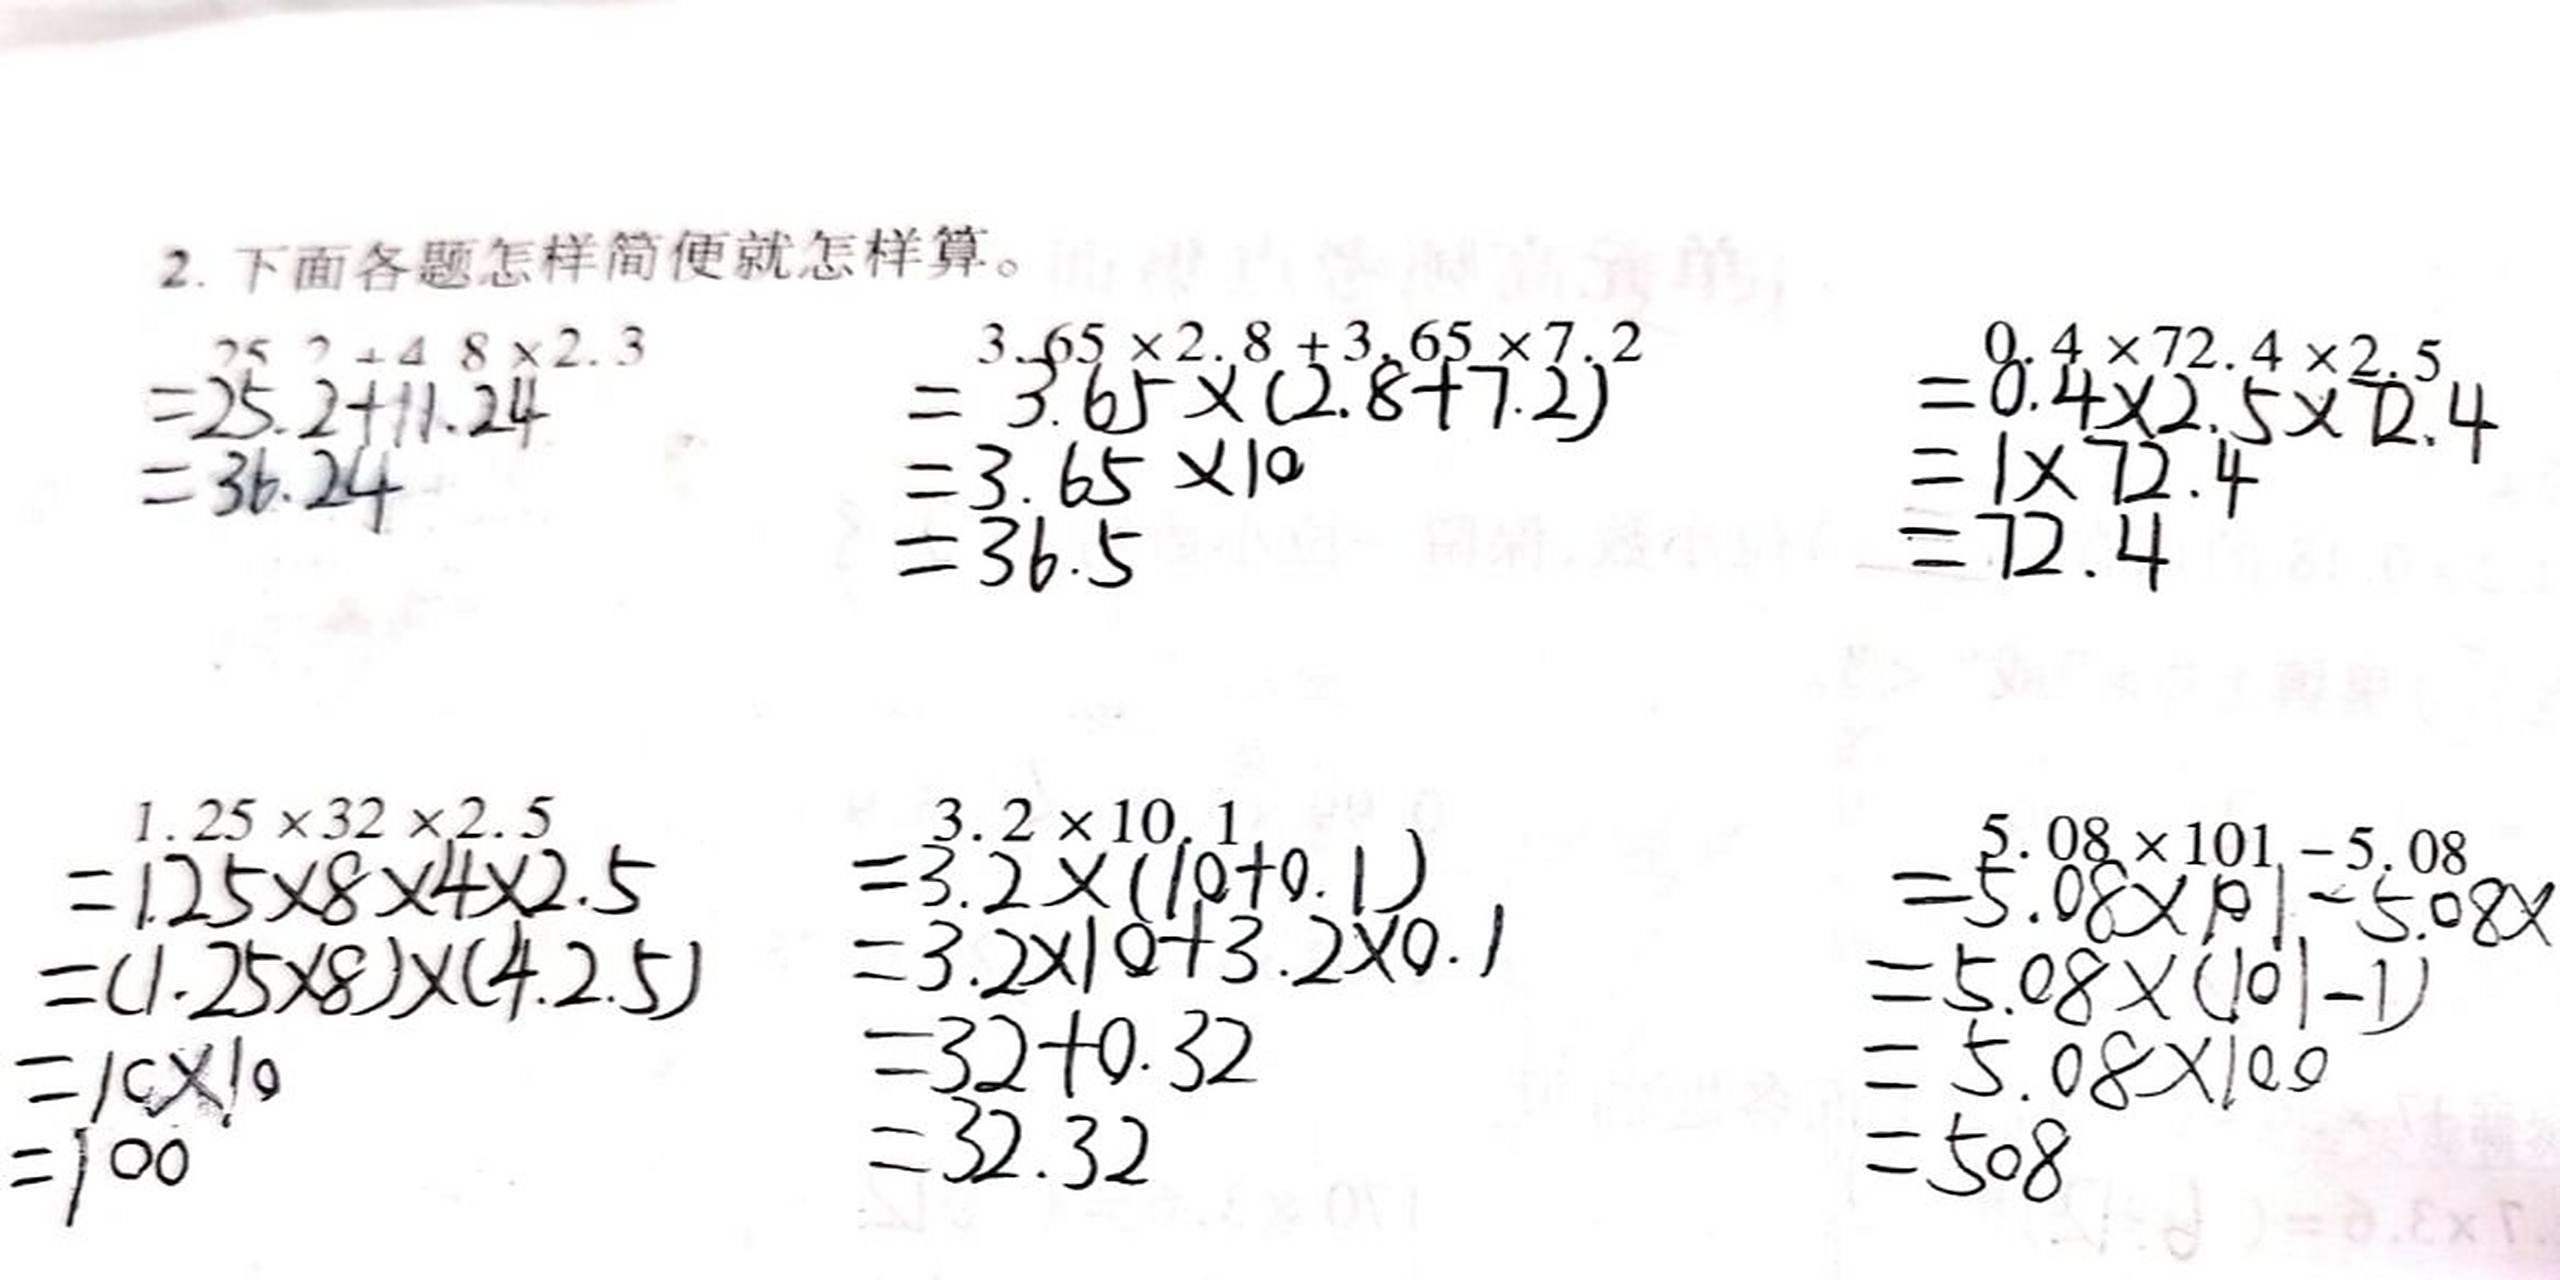 2. 下面各题怎样简便就怎样算。
25.2+4.8×2.3
=25.2+11.24
=36.24
3.65×2.8+3.65×7.2
=3.65×(2.8+7.2)
=3.65×10
=36.5
0.4×72.4×2.5
=0.4×2.5×72.4
=1×72.4
=72.4
1.25×32×2.5
=1.25×8×4×2.5
=(1.25×8)×(4.2.5)
=10×10
=100
3.2×10.1
=3.2×(10+0.1)
=3.2×10+3.2×0.1
=32+0.32
=32.32
5.08×101-5.08
=5.08×101-5.08×
=5.08×(101-1)
=5.08×100
=508